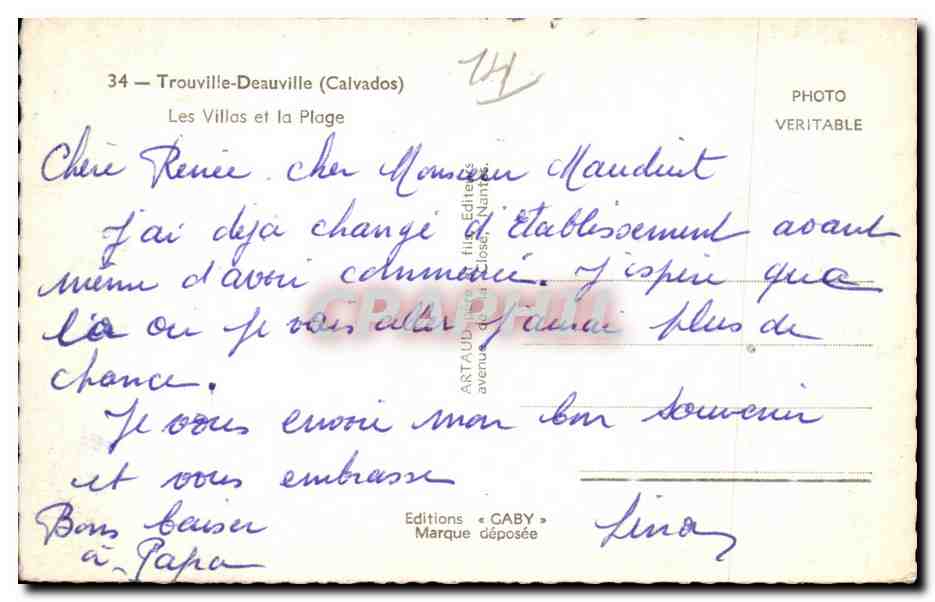 34 — Trouville-Deauville (Calvados)
Les Villas et la Plage
14
PHOTO
VERITABLE
Chère Renée cher Monsieur
J'ai déjà changé d'établissement avant
même d'avoir commencé. J'espère que
là où je vais aller j'aurai plus de
chance.
Je vous envoie mon bon souvenir
et vous embrasse
Bons baiser
à Papa
Lina
Editions « GABY »
Marque déposée
ARTAUD père et fils, Editeurs
avenue de la Close, Nantes.
CPAPHIL